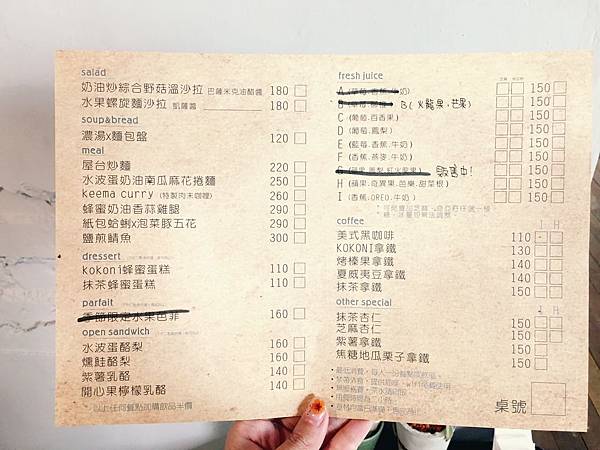 salad
奶油炒綜合野菇溫沙拉 巴薩米克油醋醬 180
水果螺旋麵沙拉 凱薩醬 180
soup&bread
濃湯x麵包盤 120
meal
屋台炒麵 220
水波蛋奶油南瓜麻花捲麵 250
keema curry (特製肉末咖哩) 260
蜂蜜奶油香蒜雞腿 290
紙包蛤蜊x泡菜豚五花 290
鹽煎鯖魚 300
dessert
kokoni蜂蜜蛋糕 110
抹茶蜂蜜蛋糕 110
parfait
季節限定水果芭菲 160
open sandwich
水波蛋酪梨 160
燻鮭酪梨 160
紫薯乳酪 140
開心果檸檬乳酪 140
*以上任何餐點加購飲品半價
fresh juice
A (草莓.香蕉.牛奶) 150
B B(火龍果,芒果) 150
C (葡萄.百香果) 150
D (葡萄.鳳梨) 150
E (藍莓.香蕉.牛奶) 150
F (香蕉.燕麥.牛奶) 150
G (蘋果.鳳梨.紅火龍果) 150
H (蘋果.奇異果.芭樂.甜菜根) 150
I (香蕉.OREO.牛奶) 150
coffee I H
美式黑咖啡 110
KOKONI拿鐵 130
烤榛果拿鐵 140
夏威夷豆拿鐵 140
抹茶拿鐵 150
other special I H
抹茶杏仁 150
芝麻杏仁 150
紫薯拿鐵 150
焦糖地瓜栗子拿鐵 150
桌號